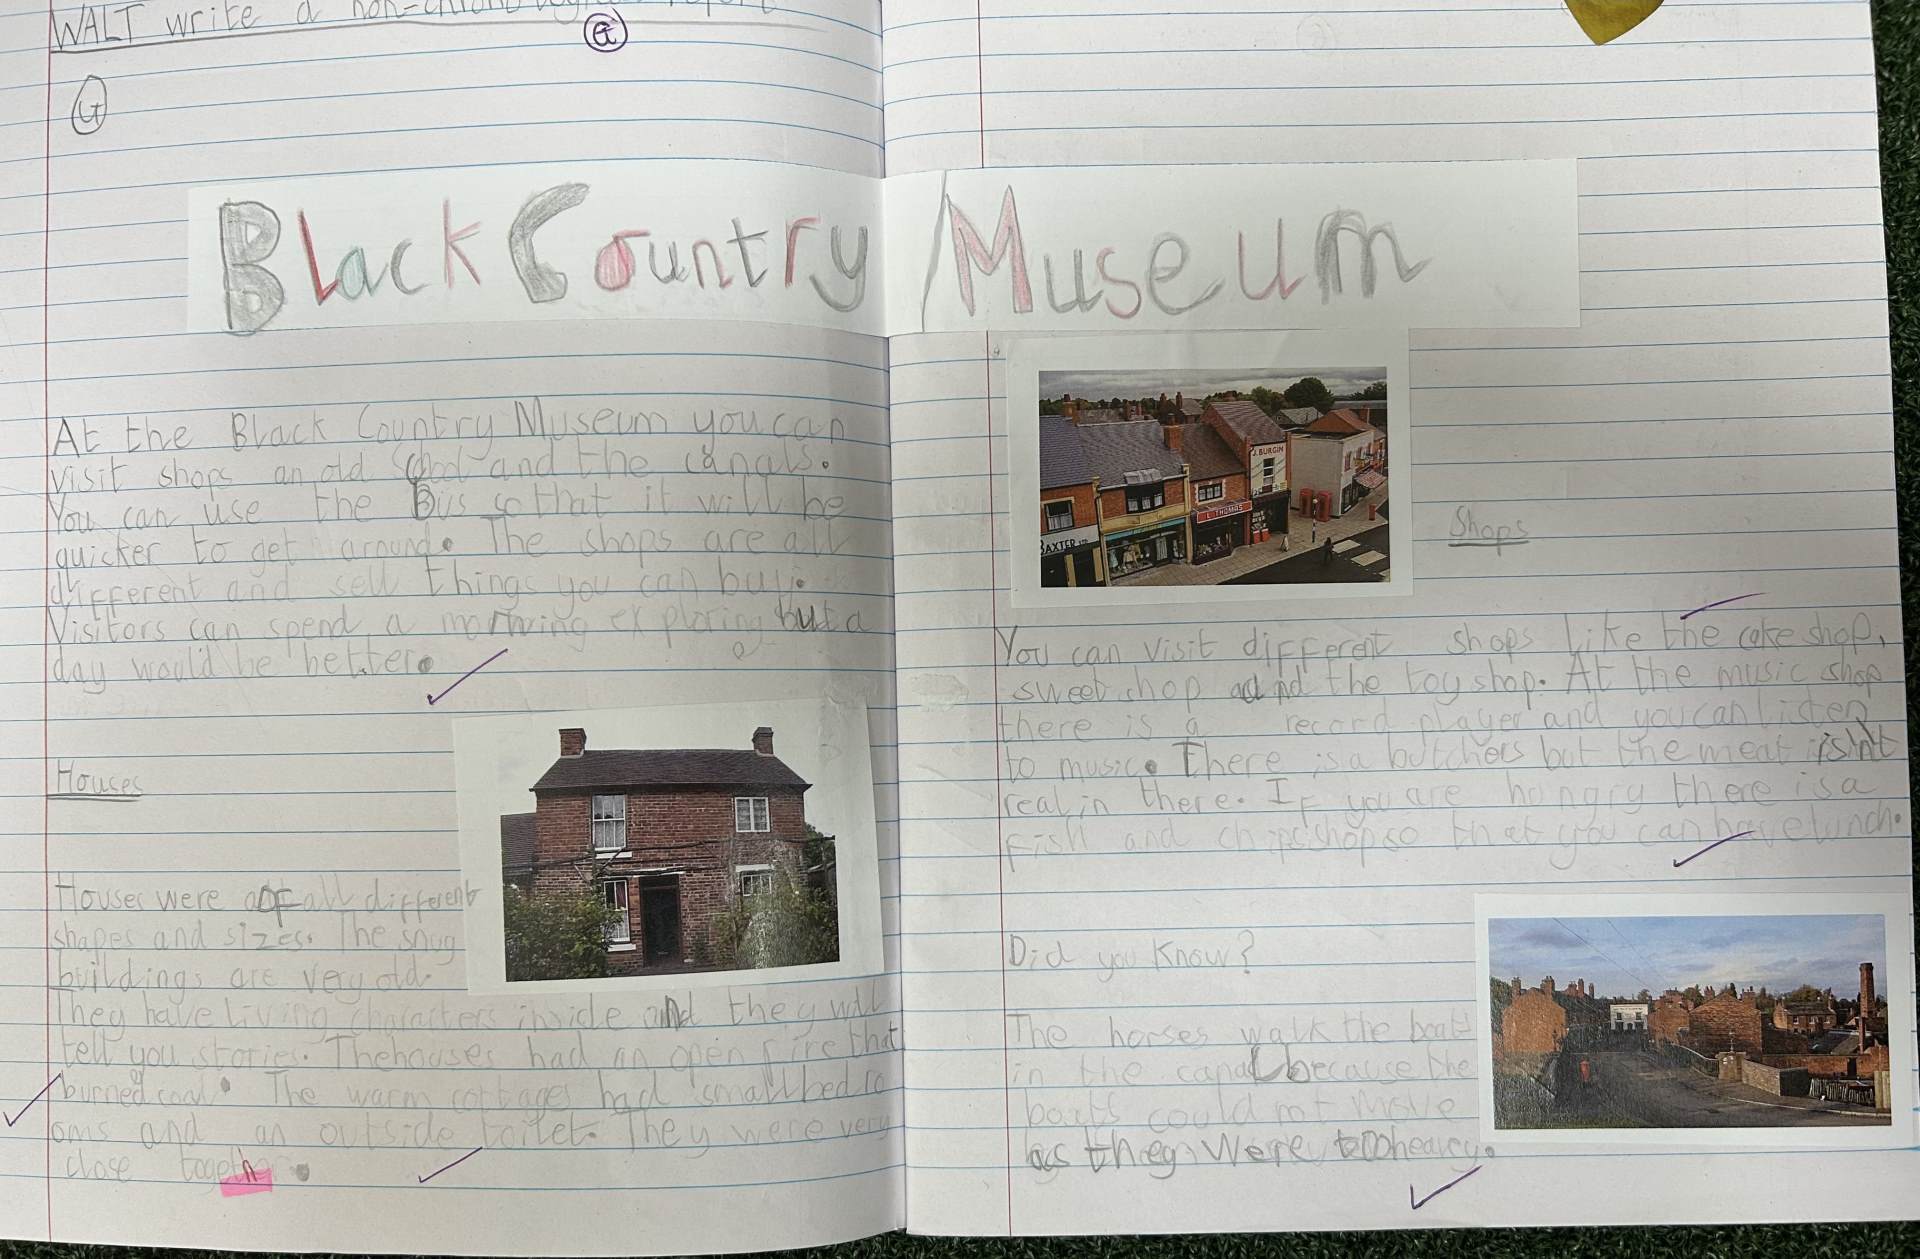 WALT write a non-chronological report
G
G
Black Country Museum
At the Black Country Museum you can
visit shops an old School and the canals.
You can use the Bus so that it will be
quicker to get around. The shops are all
different and sell things you can buy.
Visitors can spend a morning exploring but a
day would be better.
Houses
Houses were of all different
shapes and sizes. The snug
buildings are very old.
They have living characters inside and they will
tell you stories. The houses had an open fire that
burned coal. The warm cottages had small bedro
oms and an outside toilet. They were very
close together.
J. BURGIN
L. THOMAS
BAXTER LTD
Shops
You can visit different shops like the cake shop,
sweet shop and the toy shop. At the music shop
there is a record player and you can listen
to music. There is a butchers but the meat isn't
real in there. If you are hungry there is a
fish and chips shop so that you can have lunch.
Did you Know?
The horses walk the boats
in the canal because the
boats could not move
as they were too heavy.